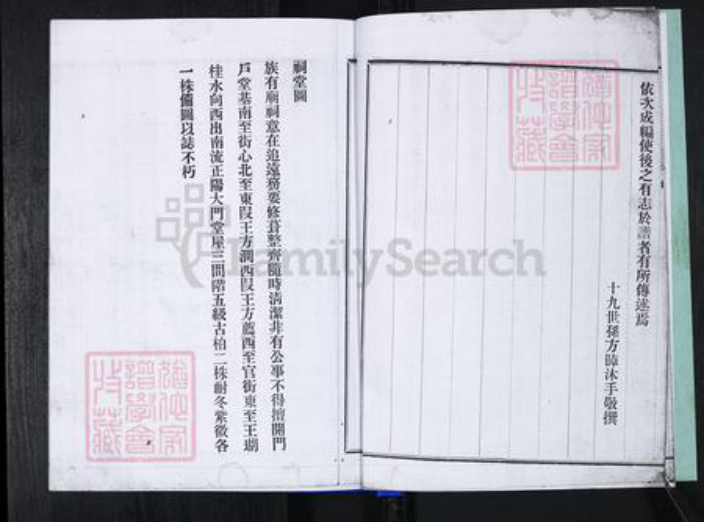 依次成編使後之有志於譜者有所傳述焉
十九世孫方暐沐手敬撰
祠堂圖
族有廟祠意在追遠務要修葺整齊隨時清潔非有公事不得擅開門
戶堂基南至街心北至東叚王方潤西叚王方蘆西至官街東至王瑚
桂水向西出南流正陽大門堂屋三間階五級古柏二株耐冬紫薇各
一株備圖以誌不朽
猶他家譜學會收藏
猶他家譜學會收藏
FamilySearch